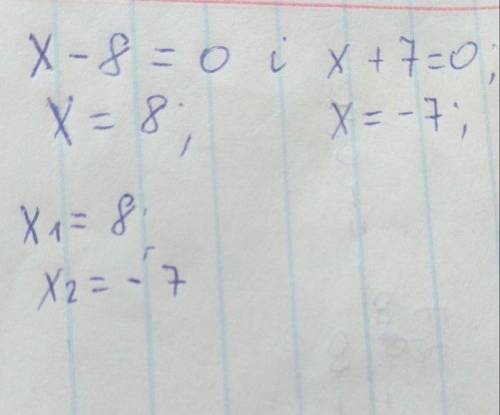 x - 8 = 0 і x + 7 = 0;
x = 8; x = -7;
x1 = 8;
x2 = -7